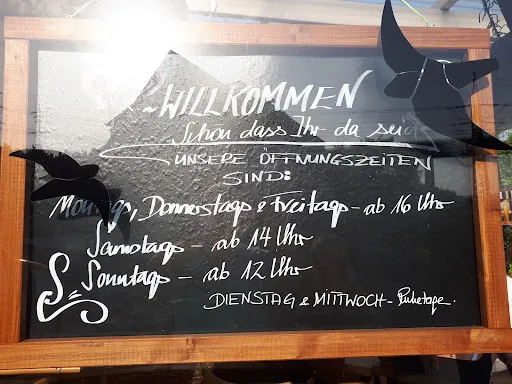 ~ WILLKOMMEN
Schön dass Ihr da seid
UNSERE ÖFFNUNGSZEITEN
SIND:
Montags, Donnerstags & Freitags - ab 16 Uhr
Samstags - ab 14 Uhr
Sonntags - ab 12 Uhr
DIENSTAG & MITTWOCH - Ruhetage.